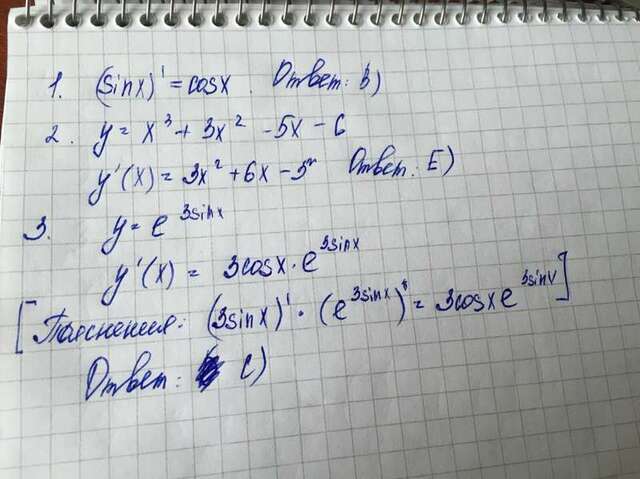 1. (sinx)' = cosx. Ответ: B)
2. y = x³ + 3x² - 5x - 6
y'(x) = 3x² + 6x - 5 Ответ: E)
3. y = e^3sinx
y'(x) = 3cosx · e^3sinx
[Пояснения: (3sinx)' · (e^3sinx)' = 3cosxe^3sinx]
Ответ: C)